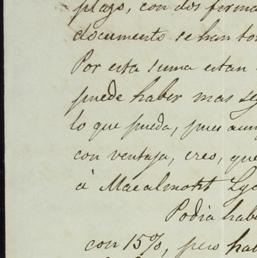 plazo, con dos firma
documento se han to
Por esta suma estan
puede haber mas se
lo que pueda, pues aun
con ventaja, creo, que
á Macalmott Ly
Podia hab
con 15%, pero ha